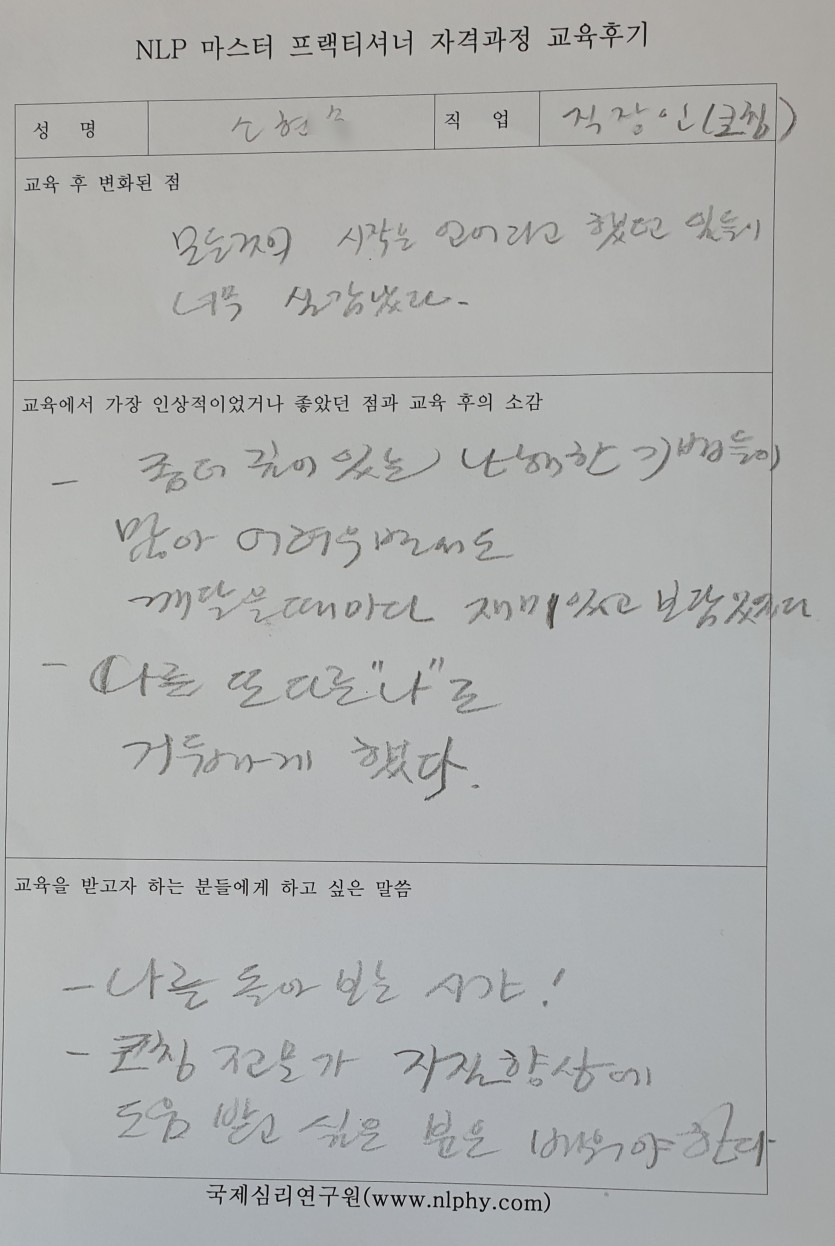 NLP 마스터 프랙티셔너 자격과정 교육후기
성 명 직 업 직장인(코칭)
교육 후 변화된 점
모든것의 시작은 언어라고 했던 일들이
너무 실감났다-
교육에서 가장 인상적이었거나 좋았던 점과 교육 후의 소감
- 좀더 깊이 있는 난해한 기법들이
많아 어려우면서도
깨달을때마다 재미있고 보람있었다
- 나를 또 다른 "나"로
거듭나게 했다.
교육을 받고자 하는 분들에게 하고 싶은 말씀
- 나를 돌아 보는 시간!
- 코칭 전문가 자질향상에
도움 받고 싶은 분은 배워야한다
국제심리연구원(www.nlphy.com)